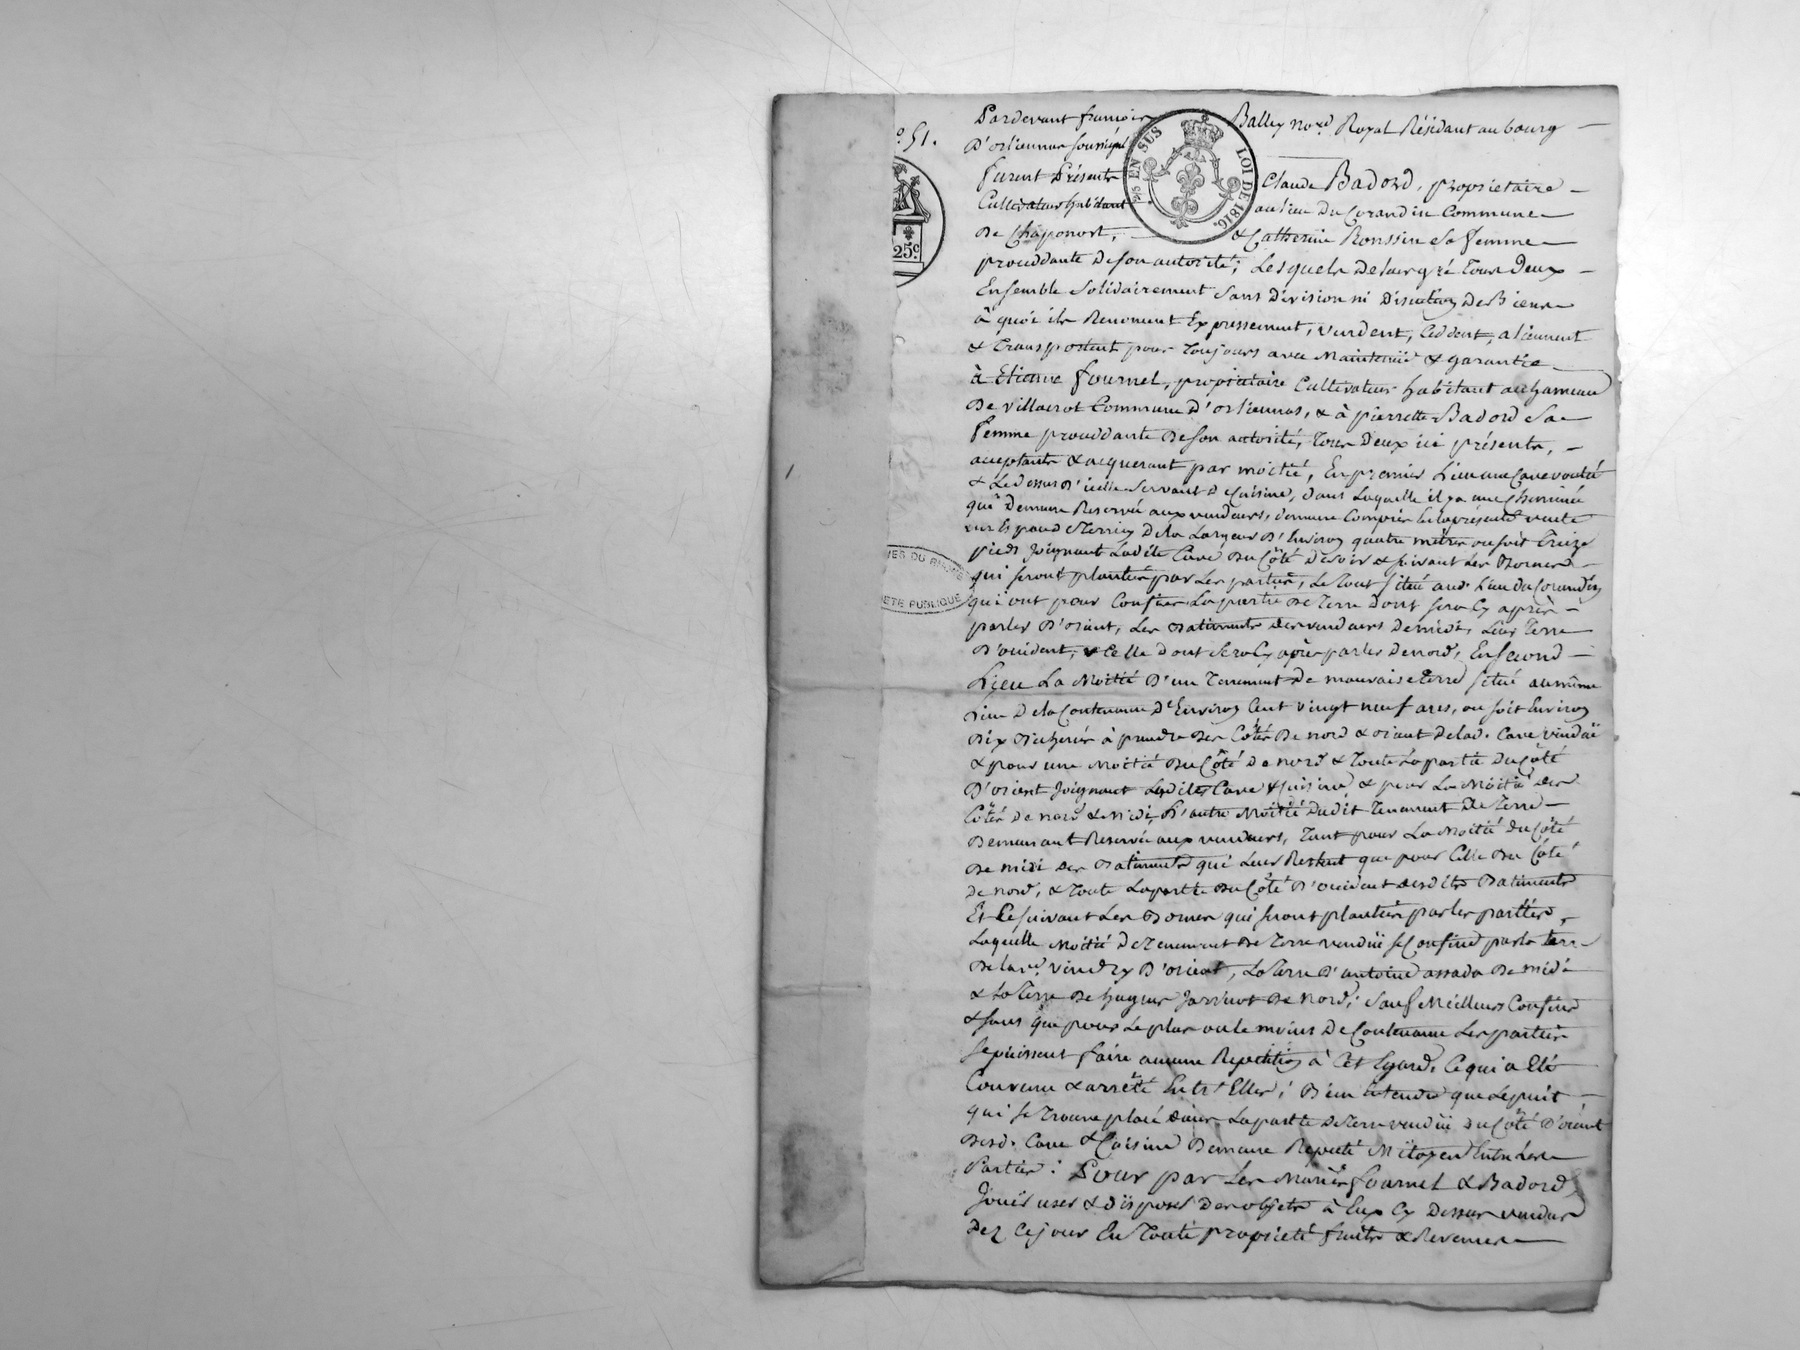 o. 51.
Pardevant françois Balley No.re Royal Résidant au bourg
D'orliennas soussigné
EN SUS LOI DE 1816.
furent Présents Claude Badord, propriétaire
Cultivateur habitant au lieu Du Corandin Commune
25c
de Chaponost, & Catherine Ronssin Sa femme
proceddante de son autorité; Lesquels de leur gré Tous Deux
Ensemble Solidairement Sans Division ni Discution De Biens
à quoi ils Renoncent Expressement, vendent, Cèddent, aliennent
& Transportent pour Toujours avec Maintenüe & garantie
à Etienne fournel, propriétaire Cultivateur habitant au hameau
De Villacrot Commune D'orliennas, & à pierrette Badord Sa
femme proceddante de son autorité, Tous Deux ici présents,
acceptants & acquerant par moitié, En premier Lieu une Cave voutée
& Le dessus D'icelle Servant De Cuisine, dans Laquelle il y a une Cheminée
qui Demeure Reservée aux vendeurs, demeure Compris En la présente vente
un Espace Terrein De la Largeur D'Environ quatre mètres ou soit Treize
pieds Joignant Ladite Cave du Côté De soir & suivant Les Bornes
qui seront plantées par Les parties, Le Tout situé aud. Lieu du Corandin
qui ont pour Confins La partie De Terre Dont sera Cy après
parlés D'orient, Les Batiments des vendeurs De midi, Leur Terre
D'occident, & Celle dont Sera Cy après parlés De nord, En Second
Lieu La Moitié D'un Tennement De mauvaise Terre situé au même
Lieu De la Contenance D'Environ Cent vingt neuf ares, ou soit Environ
Dix Bicherées à prendre des Côtés De nord & orient De lad. Cave vendüe
& pour une Moitié Du Côté De nord & Toute La partie Du Côté
D'orient Joignant Lesdites Cave & cuisine, & pour La Moitié des
Côtés De nord & Midi, L'autre Moitié Dudit Tenement De Terre
Demeurant Reservée aux vendeurs, Tant pour La Moitié du Côté
De midi des Batiments qui Leurs Restent que pour Celle Du Côté
De nord, & Toute La partie Du Côté D'occident desdits Batiments
Et Ce suivant Les Bornes qui seront plantées par les parties,
Laquelle Moitié De Tenement De Terre vendüe se Confine par la Terre
De la De D'orient, La Terre D'antoine De midi
& La Terre De hugues De nord; Sauf Meilleurs Confins
& sans que pour Le plus ou le moins De Contenance Les parties
se puissent faire aucune Repetition à Cet Egard. Ce qui a Eté
Convenu & arrêté Entr'Elles; Bien Entendu que Le puit
qui se Trouve placé dans La partie De Terre vendüe du Côté D'orient
Desd. Cave & Cuisine Demeure Reputé Mitoyen Entre Les
Parties: Pour par Les Mariés fournel & Badord
Jouir user & Disposer Des objets à Eux Cy Dessus vendus
Dez Ce jour En Toute propriété fruits & Revenus